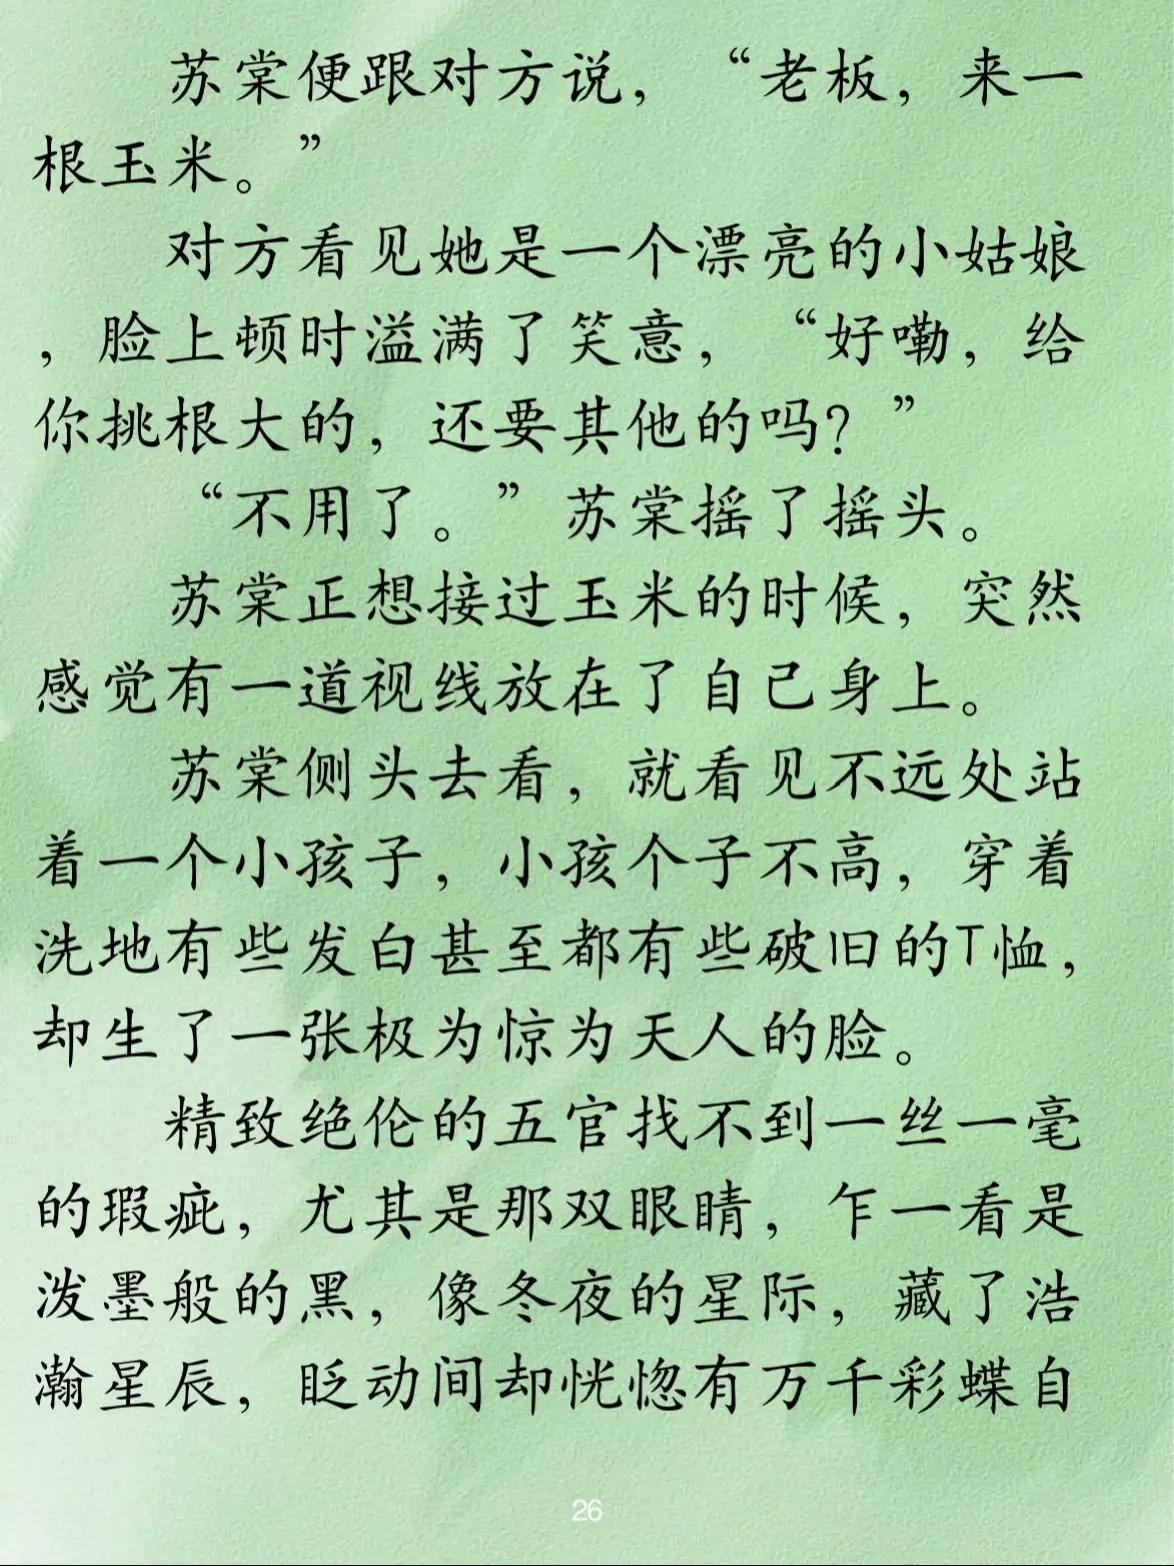 苏棠便跟对方说，“老板，来一
根玉米。”
对方看见她是一个漂亮的小姑娘
，脸上顿时溢满了笑意，“好嘞，给
你挑根大的，还要其他的吗？”
“不用了。”苏棠摇了摇头。
苏棠正想接过玉米的时候，突然
感觉有一道视线放在了自己身上。
苏棠侧头去看，就看见不远处站
着一个小孩子，小孩个子不高，穿着
洗地有些发白甚至都有些破旧的T恤，
却生了一张极为惊为天人的脸。
精致绝伦的五官找不到一丝一毫
的瑕疵，尤其是那双眼睛，乍一看是
泼墨般的黑，像冬夜的星际，藏了浩
瀚星辰，眨动间却恍惚有万千彩蝶自
26